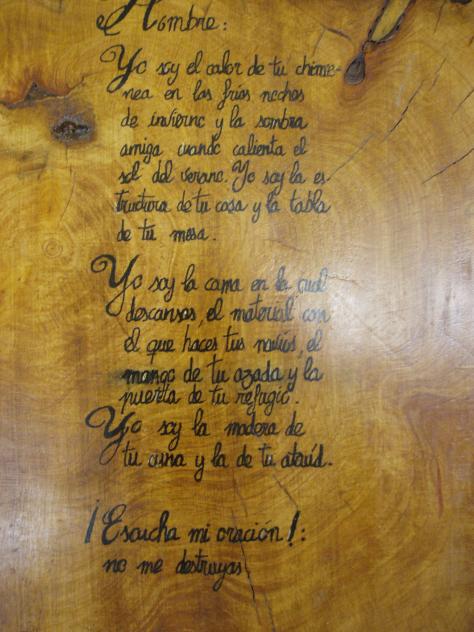 Hombre:
Yo soy el calor de tu chime-
nea en las frías noches
de invierno y la sombra
amiga cuando calienta el
sol del verano. Yo soy la es-
tructura de tu casa y la tabla
de tu mesa.
Yo soy la cama en la cual
descansas, el material con
el que haces tus navíos, el
mango de tu azada y la
puerta de tu refugio.
Yo soy la madera de
tu cuna y la de tu ataúd.
¡Escucha mi oración!:
no me destruyas.